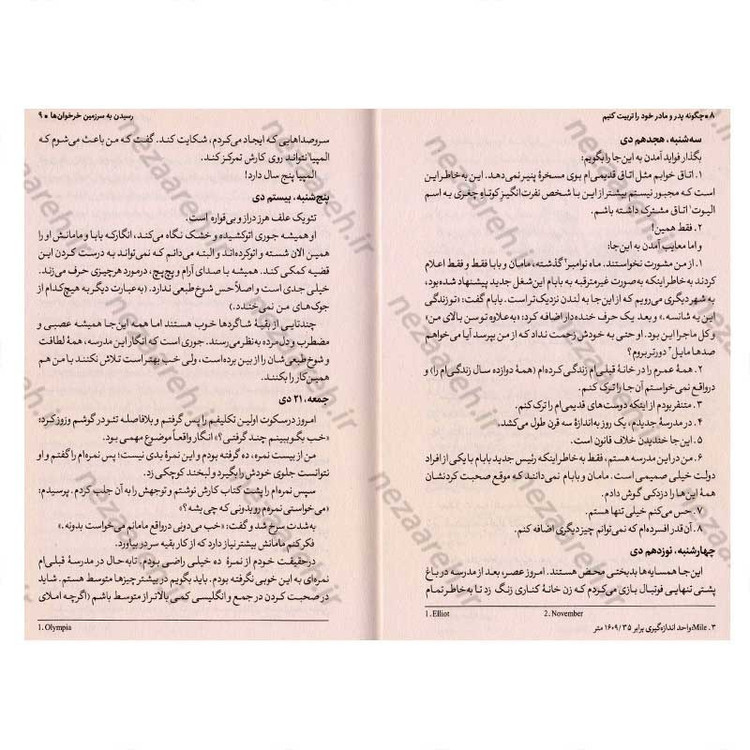 ۸ • چگونه پدر و مادر خود را تربیت کنیم
سه‌شنبه، هجدهم دی
بگذار فواید آمدن به این‌جا را بگویم:
۱. اتاق خوابم مثل اتاق قدیمی‌ام بوی مسخرهٔ پنیر نمی‌دهد. این به‌خاطر این
است که مجبور نیستم بیشتر از این با شخص نفرت‌انگیز کوتاهِ چغری به اسم
الیوت۱ اتاق مشترک داشته باشم.
۲. فقط همین!
و اما معایب آمدن به این‌جا:
۱. از من مشورت نخواستند. ماه نوامبر۲ گذشته، مامان و بابا فقط و فقط اعلام
کردند به‌خاطر اینکه به‌صورت غیرمترقبه به بابام این شغل جدید پیشنهاد شده بود،
به شهر دیگری می‌رویم که از این‌جا به لندن نزدیک‌تر است. بابام گفت: «تو زندگی
این یه شانسه.» و بعد یک حرف خنده‌دار اضافه کرد: «به‌علاوه تو سن بالای من!»
و کل ماجرا این بود. او حتی به خودش زحمت نداد که از من بپرسد آیا می‌خواهم
صدها مایل۳ دورتر بروم؟
۲. همهٔ عمرم را در خانهٔ قبلی‌ام زندگی کرده‌ام (همهٔ دوازده سال زندگی‌ام را) و
درواقع نمی‌خواستم آن‌جا را ترک کنم.
۳. متنفر بودم از اینکه دوست‌های قدیمی‌ام را ترک کنم.
۴. در مدرسهٔ جدیدم، یک روز به‌اندازهٔ سه قرن طول می‌کشد.
۵. این‌جا خندیدن خلاف قانون است.
۶. من در این مدرسه هستم، فقط به‌خاطر اینکه رئیس جدید بابام با یکی از افراد
دولت خیلی صمیمی است. مامان و بابام نمی‌دانند که موقع صحبت کردنشان
همهٔ این‌ها را دزدکی گوش دادم.
۷. حس می‌کنم خیلی تنها هستم.
۸. آن‌قدر افسرده‌ام که نمی‌توانم چیز دیگری اضافه کنم.
چهارشنبه، نوزدهم دی
این‌جا همسایه‌ها بدبختی محض هستند. امروز عصر، بعد از مدرسه در باغ
پشتی تنهایی فوتبال بازی می‌کردم که زن خانهٔ کناری زنگ زد تا به‌خاطر تمام
1. Elliot 2. November
۳. Mile: واحد اندازه‌گیری برابر ۱۶۰۹/۳۵ متر
رسیدن به سرزمین خرخوان‌ها • ۹
سروصداهایی که ایجاد می‌کردم، شکایت کند. گفت که من باعث می‌شوم که
المپیا۱ نتواند روی کارش تمرکز کند.
المپیا پنج سال دارد!
پنج‌شنبه، بیستم دی
تئو یک علف هرز دراز و بی‌قواره است.
او همیشه جوری اتوکشیده و خشک نگاه می‌کند، انگار که بابا و مامانش او را
همین الان شسته و اتو کرده‌اند و البته می‌دانم که نمی‌تواند به درست کردن این
قضیه کمکی کند. همیشه با صدای آرام و پچ‌پچ، درمورد هرچیزی حرف می‌زند.
خیلی جدی است و اصلاً حس شوخ‌طبعی ندارد. (به‌عبارت دیگر به هیچ‌کدام از
جوک‌های من نمی‌خندد.)
چندتایی از بقیهٔ شاگردها خوب هستند اما همه این‌جا همیشه عصبی و
مضطرب و دل مرده به‌نظر می‌رسند. جوری است که انگار این مدرسه، همهٔ لطافت
و شوخ‌طبعی‌شان را از بین برده‌است، ولی خب بهتر است تلاش نکنند با من هم
همین کار را بکنند.
جمعه، ۲۱ دی
امروز در سکوت اولین تکلیفم را پس گرفتم و بلافاصله تئو در گوشم وزوز کرد:
«خب بگو ببینم چند گرفتی؟» انگار واقعاً موضوع مهمی بود.
من از بیست نمره، ده گرفته بودم و این نمرهٔ بدی نیست؛ پس نمره‌ام را گفتم و او
نتوانست جلوی خودش را بگیرد و لبخند کوچکی زد.
سپس نمره‌ام را پشت کتاب کارش نوشتم و توجهش را به آن جلب کردم. پرسیدم:
«می‌خواستی نمره‌م رو بدونی که چی بشه؟»
به‌شدت سرخ شد و گفت: «خب می‌دونی درواقع مامانم می‌خواست بدونه.»
فکر کنم مامانش بیشتر نیاز دارد که از کار بقیه سر دربیاورد.
درحقیقت خودم از نمرهٔ ده خیلی راضی بودم. تابه‌حال در مدرسهٔ قبلی‌ام
نمره‌ای به این خوبی نگرفته بودم. باید بگویم در بیشتر چیزها متوسط هستم. شاید
در صحبت کردن در جمع و انگلیسی کمی بالاتر از متوسط باشم (اگرچه املای
1. Olympia
nezaareh.ir